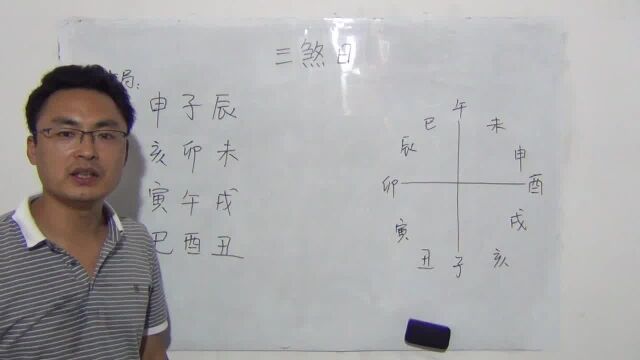 三煞日
局:
申子辰
亥卯未
寅午戌
巳酉丑
午
巳 未
辰 申
卯 酉
寅 戌
丑 子 亥